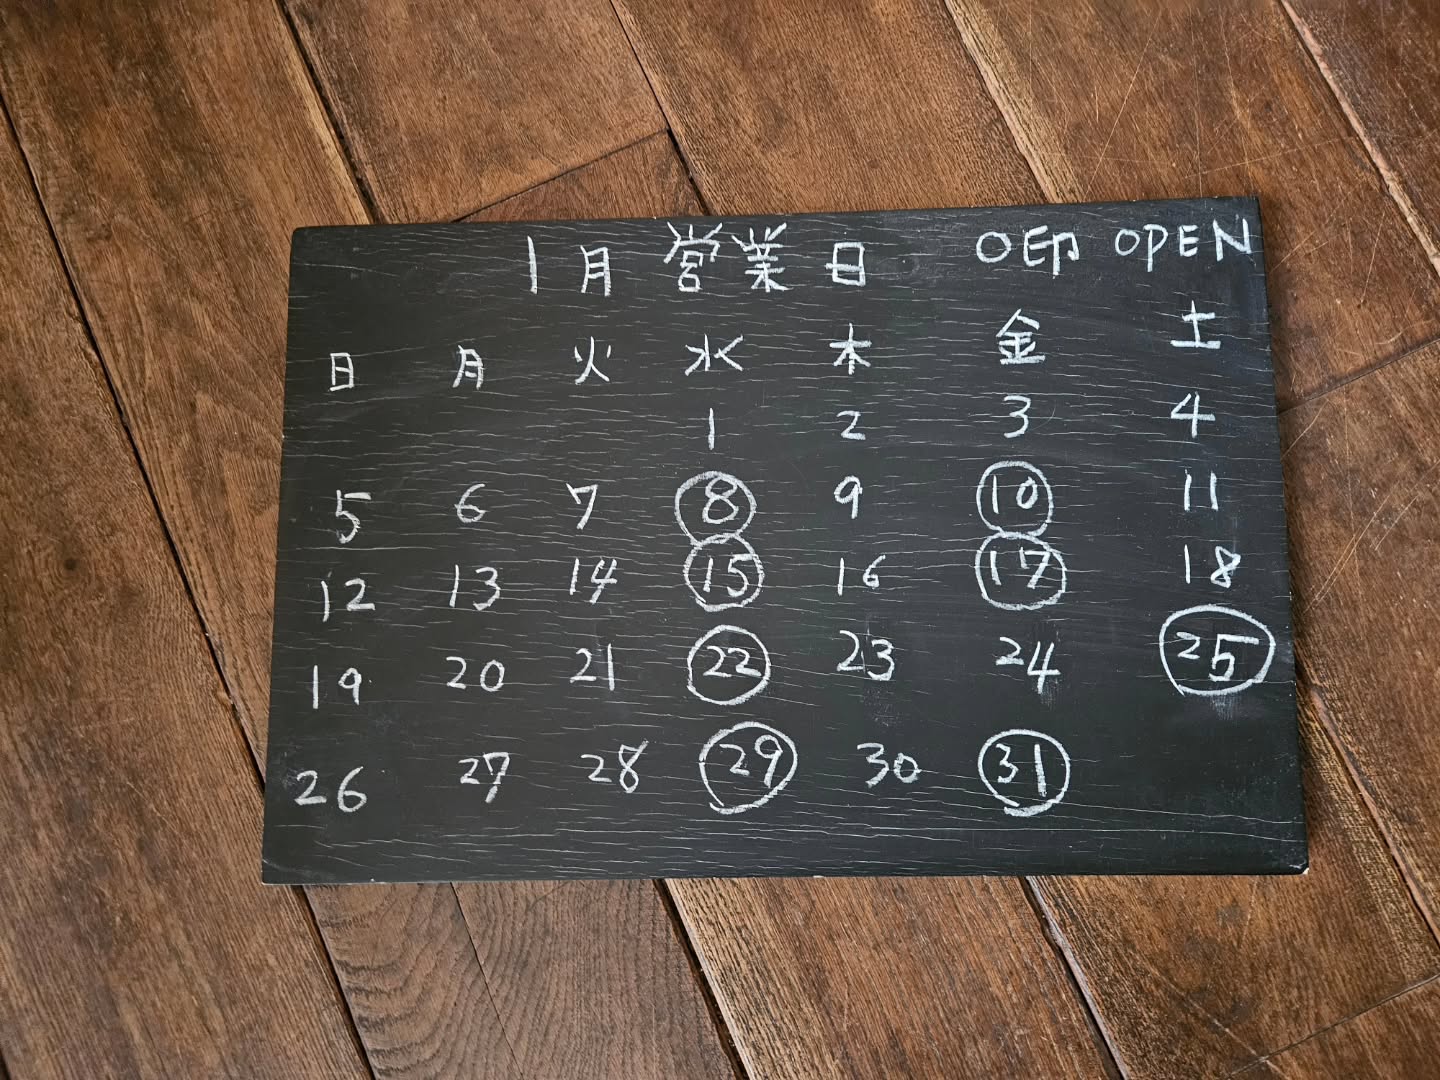 1月 営業日 〇印 OPEN
日 月 火 水 木 金 土
1 2 3 4
5 6 7 8 9 10 11
12 13 14 15 16 17 18
19 20 21 22 23 24 25
26 27 28 29 30 31